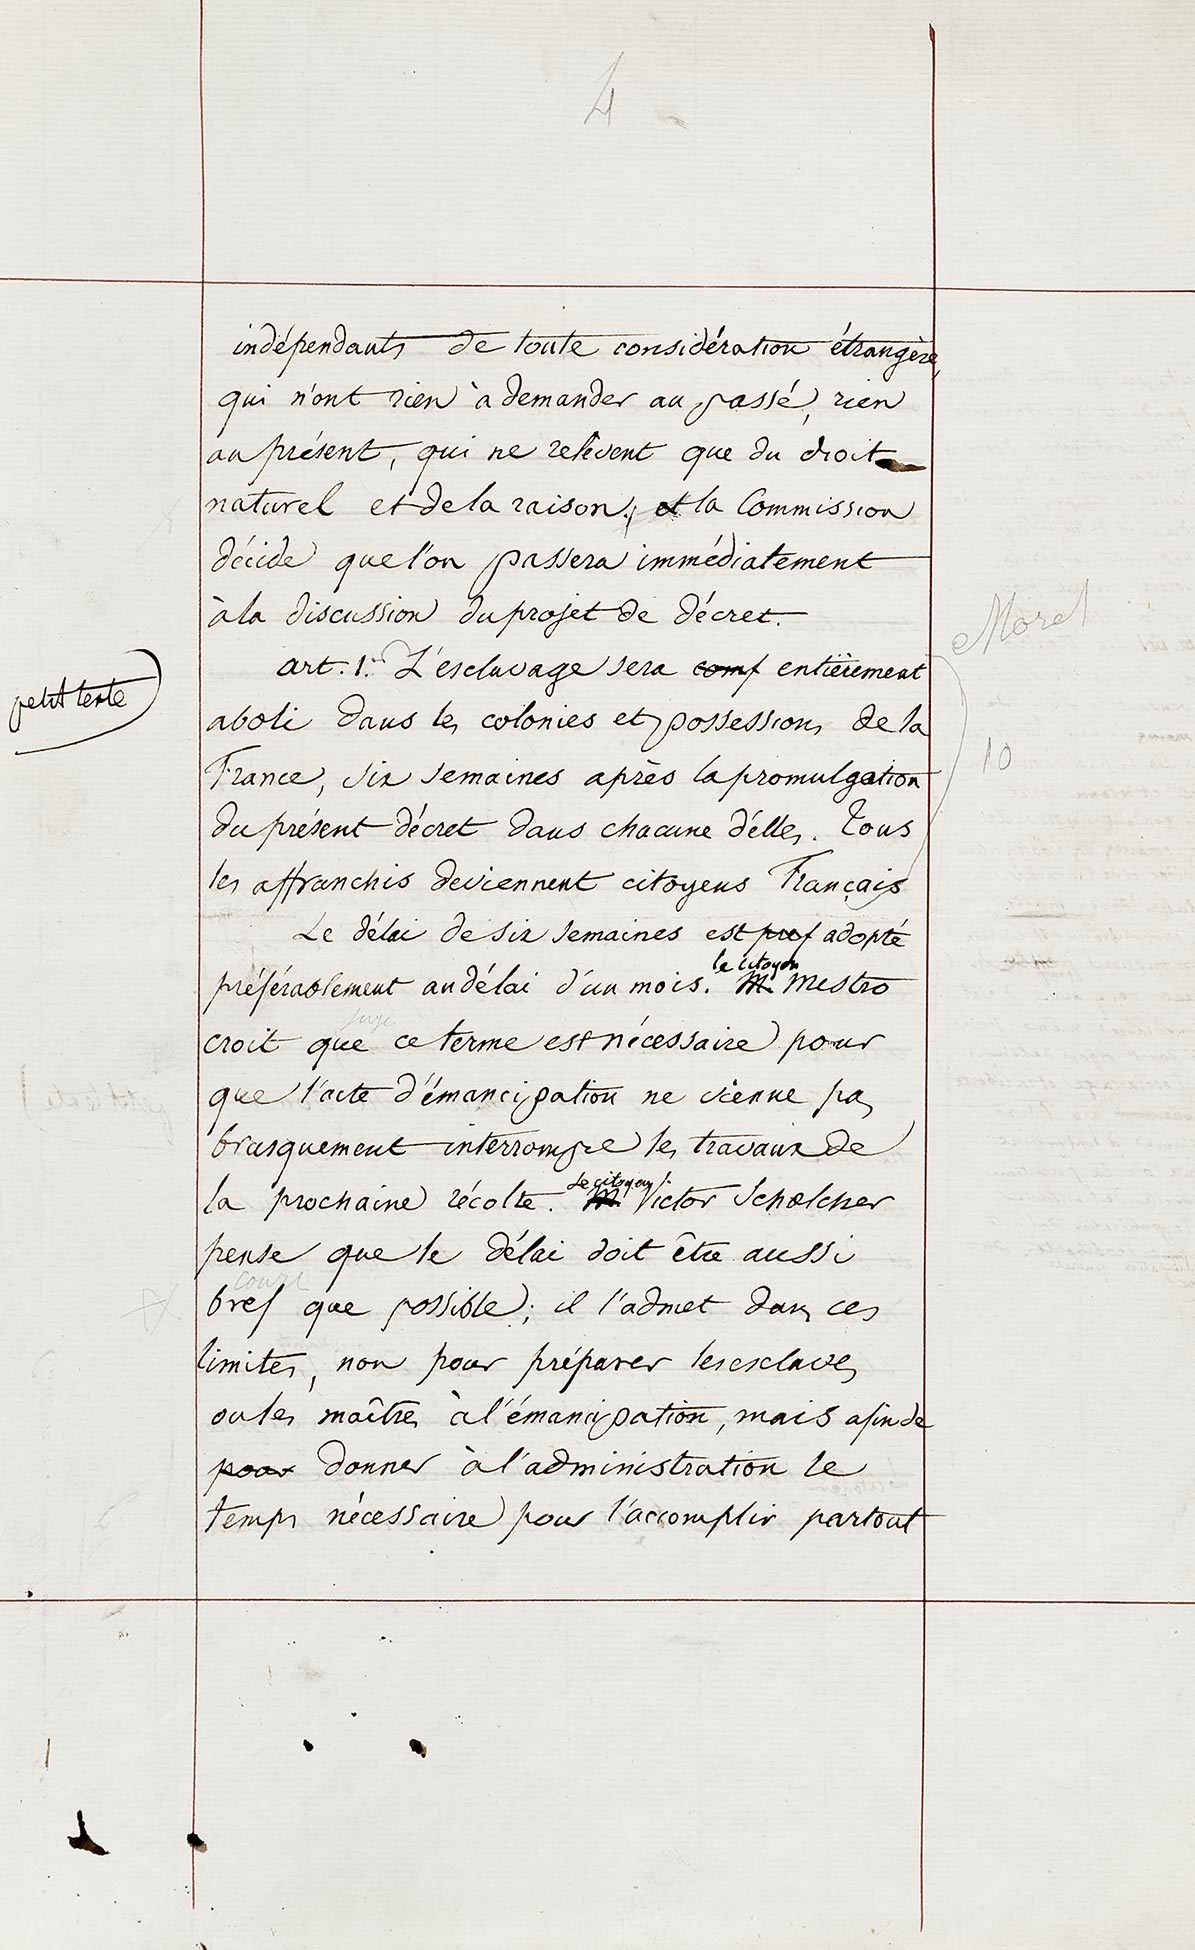 4
indépendants de toute considération étrangère,
qui n'ont rien à demander au passé, rien
au présent, qui ne relèvent que du droit
naturel et de la raison; et la Commission
décide que l'on passera immédiatement
à la discussion du projet de décret.
Morel
art. 1.er L'esclavage sera comp entièrement
petit texte
aboli dans les colonies et possessions de la
10
France, six semaines après la promulgation
du présent décret dans chacune d'elles. Tous
les affranchis deviennent citoyens Français
Le délai de six semaines est pref adopté
le citoyen
préférablement au délai d'un mois. M. Mestro
juge
croit que ce terme est nécessaire pour
que l'acte d'émancipation ne vienne pas
brusquement interrompre les travaux de
Le citoyen
la prochaine récolte. M Victor Schœlcher
pense que le délai doit être aussi
court
bref que possible; il l'admet dans ces
limites, non pour préparer les esclaves
ou les maîtres à l'émancipation, mais afin de
pour donner à l'administration le
temps nécessaire pour l'accomplir partout